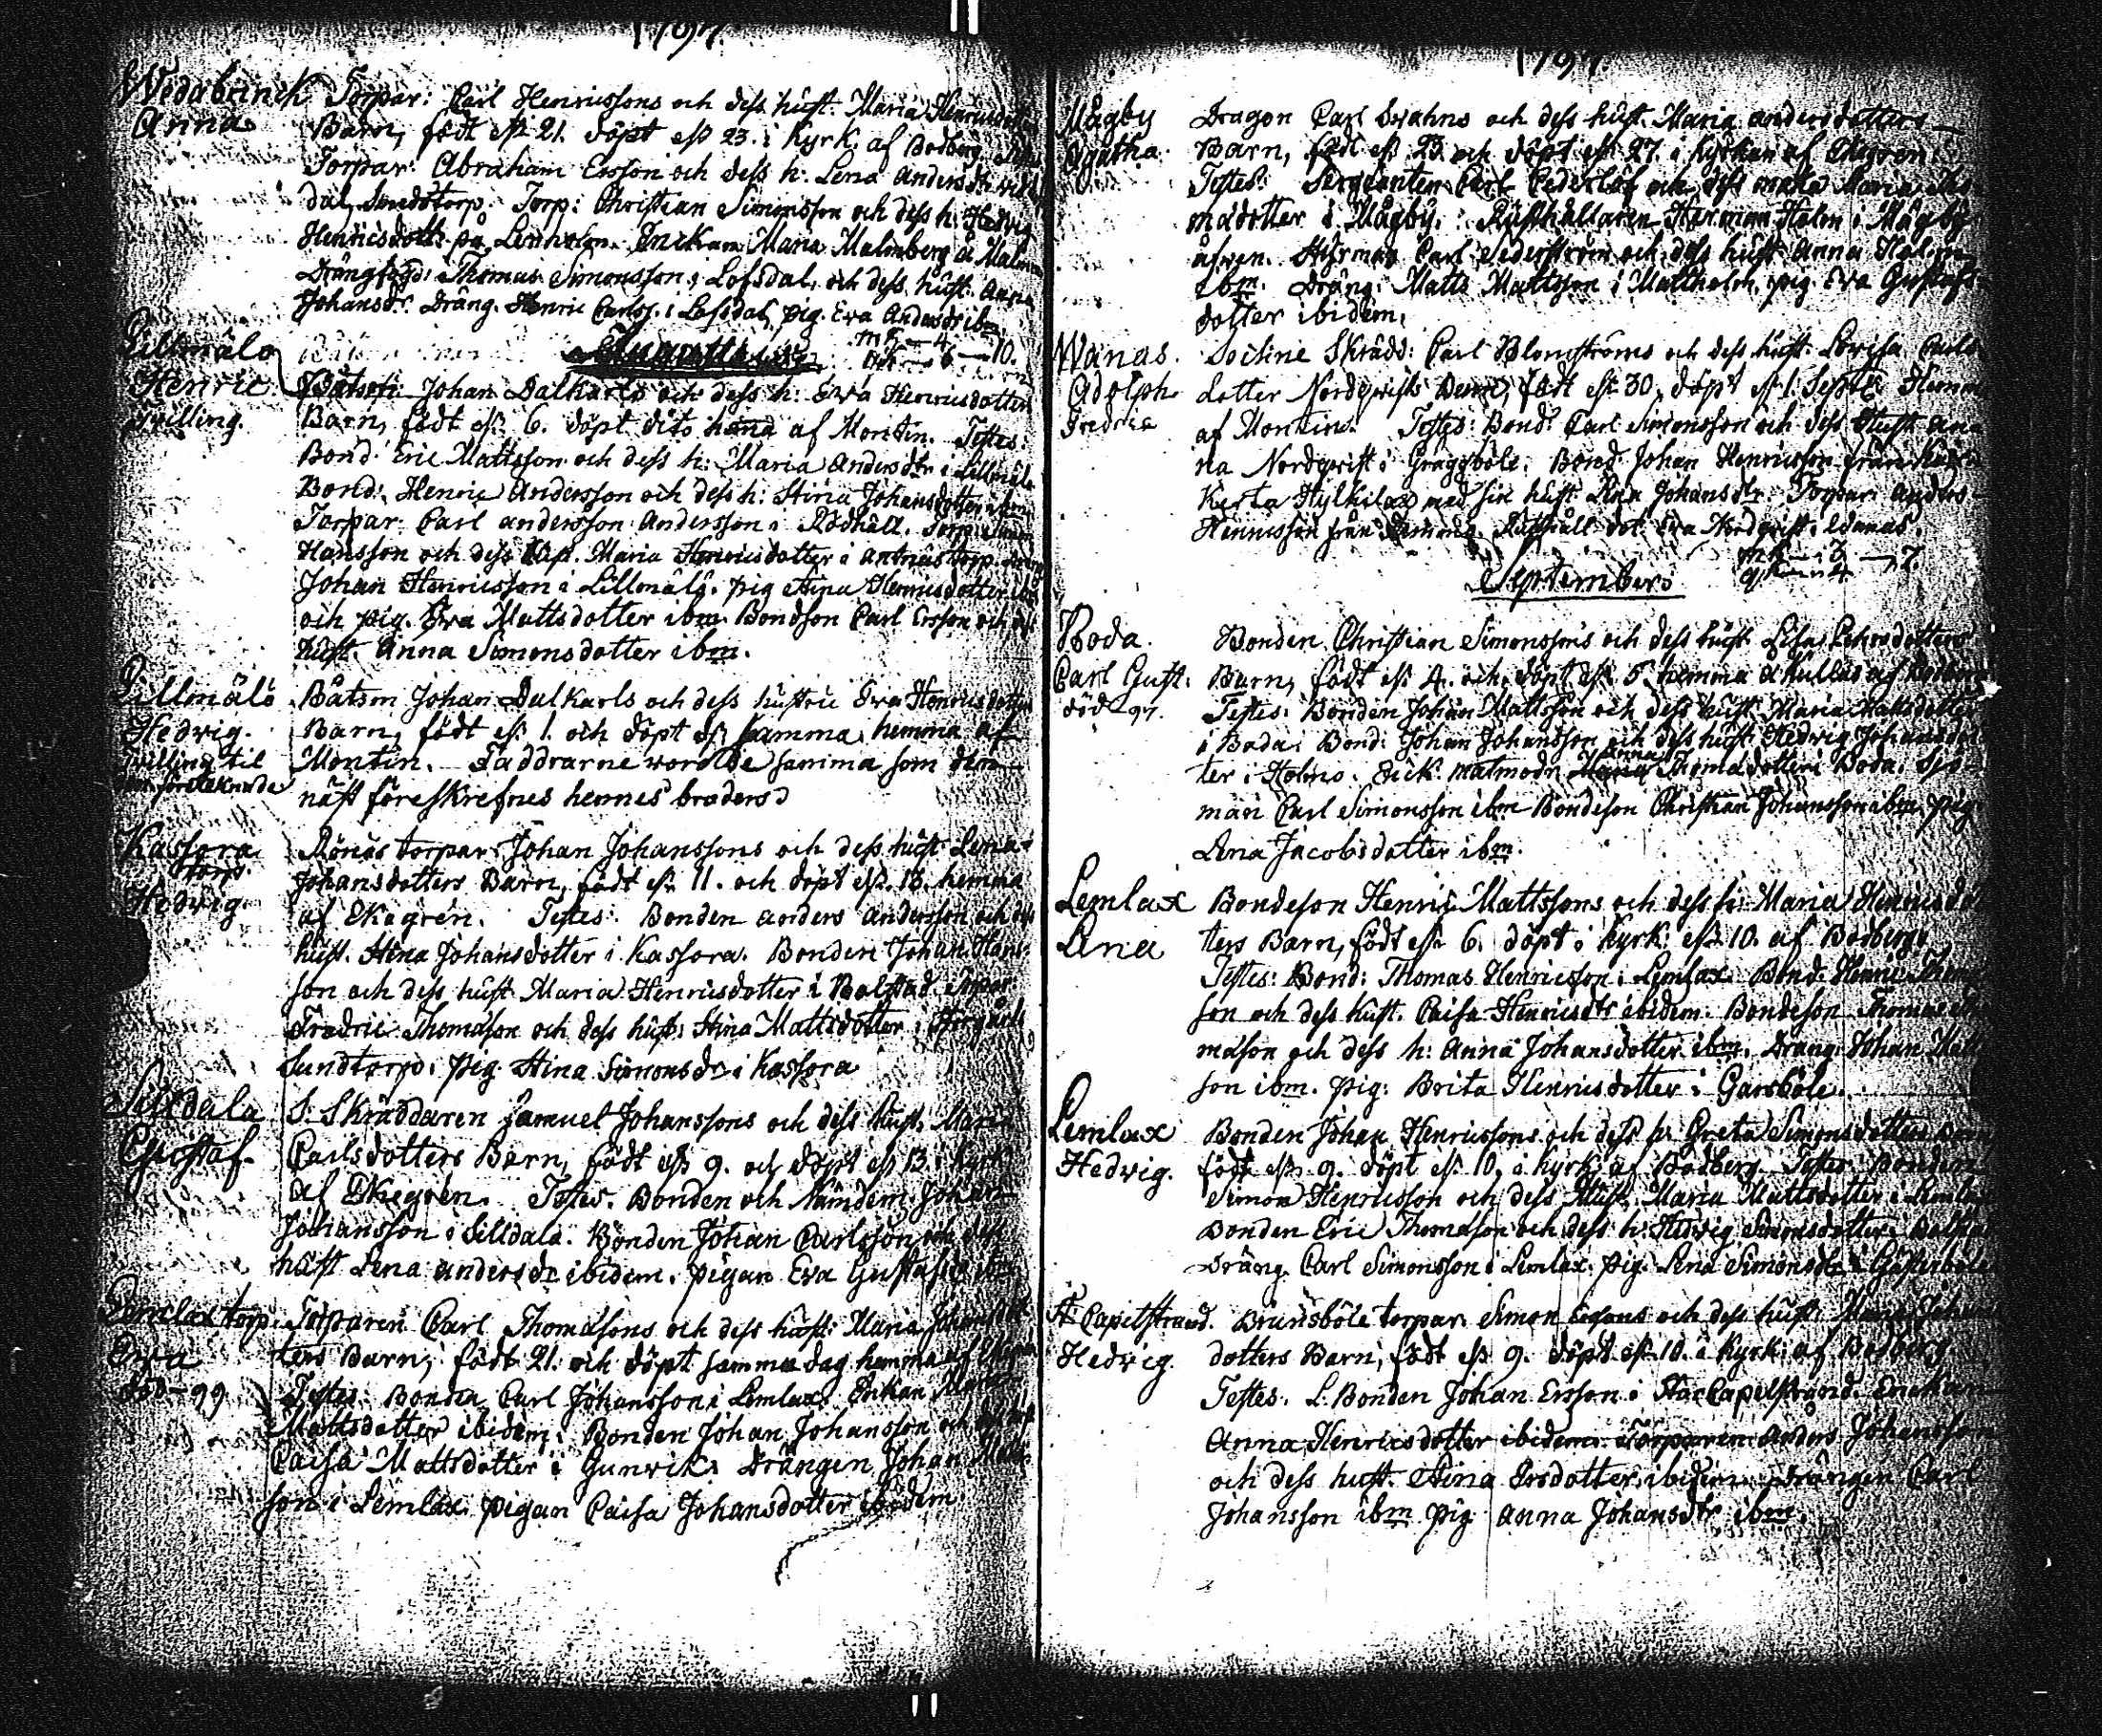 1797.
Wedabrinck Torpar: Carl Henricssons och dess hust. Maria Henricsdotters
Anna Barn, födt eß 21. döpt eß 23. i Kyrk. af Bodberg.
Torpar: Abraham Ersson och dess h: Lena Andersdtr
dal, Smedstorp. Torp: Christian Simonsson och dess h: Hedvig
Henricsdott: på Lennholm. Enickan Maria Malmberg å Malm
Drängfogd: Thomas Simonsson i Lofsdal, och dess hust. Anna
Johansdr. Dräng. Henric Carlss. i Lofsdal, pig. Eva Andersdr ibm
mk — 4
qk — 6 — 10.
Augustus
Lillmälö Båtsm: Johan Dalkarls och dess h: Eva Henricsdotters
Henric Barn, födt eß. 6. döpt dito hema af Montin. Testes:
tvilling. Bond. Eric Mattsson och dess h: Maria Andersdtr i Lillmälö
Bond: Henric Andersson och dess h: Stina Johansdotter ibm
Torpar Carl andersson Andersson i Rödhäll. Torp: Simon
Hansson och dess hust. Maria Henricsdotter i Antnäs torp.
Johan Henricsson i Lillmälö. pig Stina Henricsdotter ibm
och pig. Eva Mattsdotter ibm. Bondson Carl Ersson och dess
hust. Anna Simonsdotter ibm.
Lillmälö Båtsm Johan Dalkarls och dess hustru Eva Henricsdotters
Hedvig. Barn, födt eß. 1. och döpt eß samma hemma af
Tvilling til Montin. Faddrarne woro de samma som den
näst föreskrefnes hennes broders
Kassora torp. Rönäs torpar Johan Johanssons och dess hust Lena
Hedvig. Johansdotters Barn, födt eß 11. och döpt eß. 13. hemma
af Ekegrén. Testes: Bonden anders andersson och dess
hust. Stina Johansdotter i Kassora. Bonden Johan Hans-
son och dess hust Maria Henricsdotter i Bolstad. Torpar
Fredric Thomasson och dess hust: Stina Mattsdotter i
Sundtorp. pig. Stina Simonsdr i Kassora
Silldala S: Skräddaren Samuel Johanssons och dess hust. Maria
Gustaf. Carlsdotters Barn, födt eß 9. och döpt eß 13. i Kyrk
af Ekegrén. Testes. Bonden och Nämdem. Johan
Johansson i Silldala. Bonden Johan Carlsson och dess
hust Lena andersdr ibidem. pigan Eva Gustafsdr ibm
Lemlax torp. Torparen Carl Thomasons och dess hust: Maria Johansdot
Ewa ters Barn, födt 21. och döpt samma dag hemma af Ekegrén
död - 99. Testes: Bonden Carl Johansson i Lemlax. Enkan Maria
Mattsdotter ibidem. Bonden Johan Johansson och dess hust
Caisa Mattsdotter i Gunvik. Drängen Johan Matts-
son i Lemlax. pigan Caisa Johansdotter ibidem
1797.
Mågby Dragon Carl Svahns och dess hust. Maria andersdotters
Agatha Barn, födt eß 23. och döpt eß 27. i Kyrkan af Ekegren
Testes: Sergeanten Carl Cederlöf och dess maka Maria Tho-
madotter i Mågby. Rusthållaren Herman Holm i Mågby
äfven. Styrman Carl Sederström och dess hust Anna Holm
ibm. Dräng: Matts Mattsson i Mattholm, pig. Eva Gustafs-
dotter ibidem.
Wånas. Sockne Skrädd: Carl Blomströms och dess hust. Lovisa Carls-
Adolph dotter Nordqvists Barn, födt eß 30. döpt eß 1. Septe. Hemma
Fredric af Montin. Testes: Bond: Carl Simonsson och dess Hust. An-
na Nordqvist i Graggböle. Bond Johan Henricsson från
Kerta Hylkila med sin hust Lena Johansdtr. Torpar Anders
Henricsson från Rusthåll. dot: Eva Nordqvist i Wånas.
mk — 3
qk — 4 — 7.
Septembers
Boda. Bonden Christian Simonssons och dess hust. Lisa dotters
Carl Gust. Barn, födt eß 4. och döpt eß 5 hemma af Bodberg
död - 97. Testes: Bonden Johan Mattsson och dess hust Maria Mattsdotter
i Boda. Bond: Johan Johansson och dess hust Hedvig Johansdot
ter i Holmo. Enck. matmodr Maria Anna Thomadotter i Boda. Sjö-
man Carl Simonsson ibm Bondeson Christian Johansson ibm, pig.
Lena Jacobsdotter ibm.
Lemlax Bondeson Henric Mattssons och dess h: Maria Henricsdot
Lena ters Barn, födt eß 6. döpt i Kyrk: eß 10. af Bodberg
Testes: Bond: Thomas Henricsson i Lemlax Bond: Henric Thoma
son och dess hust. Caisa Henricsdtr ibidem. Bondeson Thomas
mason och dess h: Anna Johansdotter ibm. Dräng: Johan Matts
son ibm. pig: Brita Henricsdotter i Garsböle.
Lemlax Bonden Johan Henricssons och dess h: Greta Simonsdotters Barn
Hedvig. födt eß 9. döpt eß. 10. i Kyrk: af Bodberg. Testes Bonden
Simon Henricsson och dess Hust. Maria Mattsdotter i Lemlax
Bonden Eric Thomasson och dess h: Hedvig Simonsdotter i
Dräng. Carl Simonsson i Lemlax. pig: Lena Simonsdtr i Gästerböle
St: Capellstrand. Brunsböle torpar. Simon Ersons och dess hust: Maria Johans
Hedvig. dotters Barn, födt eß 9. döpt eß 10. i Kyrk: af Bodberg.
Testes. L. Bonden Johan Ersson i Stor Capellstrand. Enckan
Anna Henricsdotter ibidem. Torparen Anders Johansson
och dess hust. Stina Ersdotter ibidem. Drängen Carl
Johansson ibm pig. Anna Johansdtr ibm.